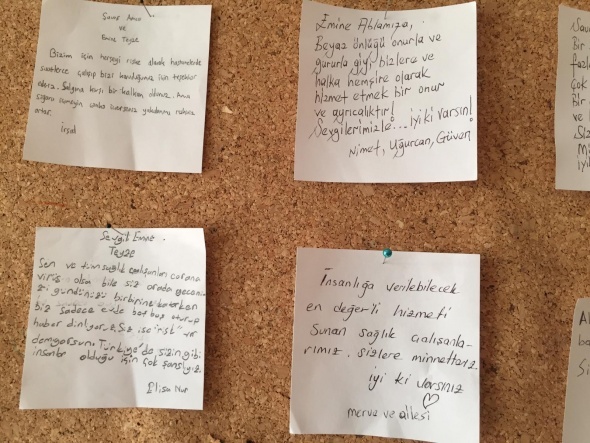 Şanser Amca
ve
Emine Teyze
Bizim için herşeyi riske alarak hastanelerde
saatlerce çalışıp bizi koruduğunuz için teşekkür
ederiz. Salgına karşı bir kalkan oldunuz. Ama
rahatsız
eder.
İrşal
Emine Ablamıza,
Beyaz önlüğü onurla ve
gururla giyip bizlere ve
halka hemşire olarak
hizmet etmek bir onur
ve ayrıcalıktır!
Sevgilerimizle... iyiki varsın!
Nimet, Uğurcan, Güven
Sevgili Emine
Teyze
Sen ve tüm sağlık çalışanları corona
virüs olsa bile siz orada gecenizi
gündünüzü birbirine katarken
biz sadece evde bot boş oturup
haber dinliyoruz, Siz ise risk var
demiyorsunuz. Türkiye'de sizin gibi
insanlar olduğu için çok şanslıyız.
Elisa Nur
İnsanlığa verilebilecek
en değerli hizmeti
sunan sağlık çalışanla-
rımız, sizlere minnettarız
iyi ki varsınız
Merve ve ailesi
bir
fazla
çok
bir
ve
Siz